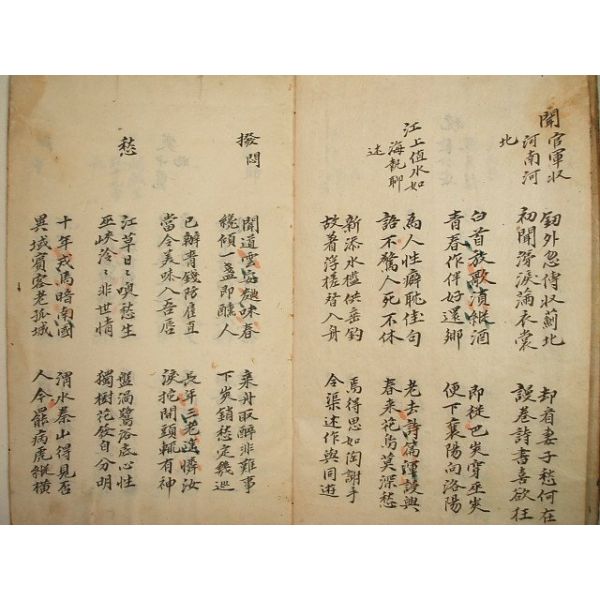 聞官軍收
河南河
北
釼外忽傳收薊北
初聞淨淚滿衣裳
却看妻子愁何在
謾卷詩書喜欲狂
白首放歌須縱酒
青春作伴好還鄉
即從巴峽穿巫峽
便下襄陽向洛陽
江上值水如
海執聊
述
為人性癖耽佳句
語不驚人死不休
老去詩篇渾謾興
春來花鳥莫深愁
新添水檻供垂釣
故着浮槎替入舟
焉得思如陶謝手
令渠述作與同遊
撥悶
聞道雲安麴味春
纔傾一盞即醺人
乘舟取醉非難事
下峽銷愁定幾巡
已辦青錢防雇直
當今美味入吾唇
長年三老遙憐汝
捩柁開頭輒有神
愁
江草日〻喚愁生
巫峽泠〻非世情
盤渦鷺浴底心性
獨樹花發自分明
十年戎馬暗南國
異域賓客老孤城
渭水秦山得見否
人今罷病虎縱橫